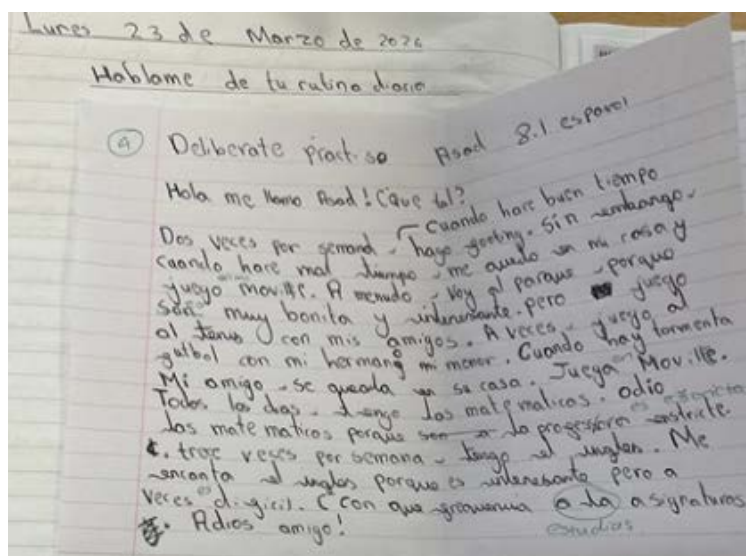 Lunes 23 de Marzo de 2026
Hablame de tu rutina diaria
4 Deliberate practise Asad 8.1 español
Hola me llamo Asad! ¿Que tal?
Dos veces por semana - Cuando hace buen tiempo
hago footing. Sin embargo -
cuando hace mal tiempo - me quedo en mi casa y
juego en movile. A menudo - voy al parque - porque
son muy bonita y interesante. pero juego
al tenis con mis amigos. A veces - juego al
futbol con mi hermano mi menor. Cuando hay tormenta
Mi amigo - se queada en se casa. Juega en Movile.
Todos los dias - tengo las matematicas. odio
las matematicas porque son la profesora es estricta estricte.
troze veces por semana - tengo el ingles. Me
encanta el ingles porque es interesante pero a
veces es dificil. ¿Con que frecuencia a la asignaturas
estudias
Adios amigo!